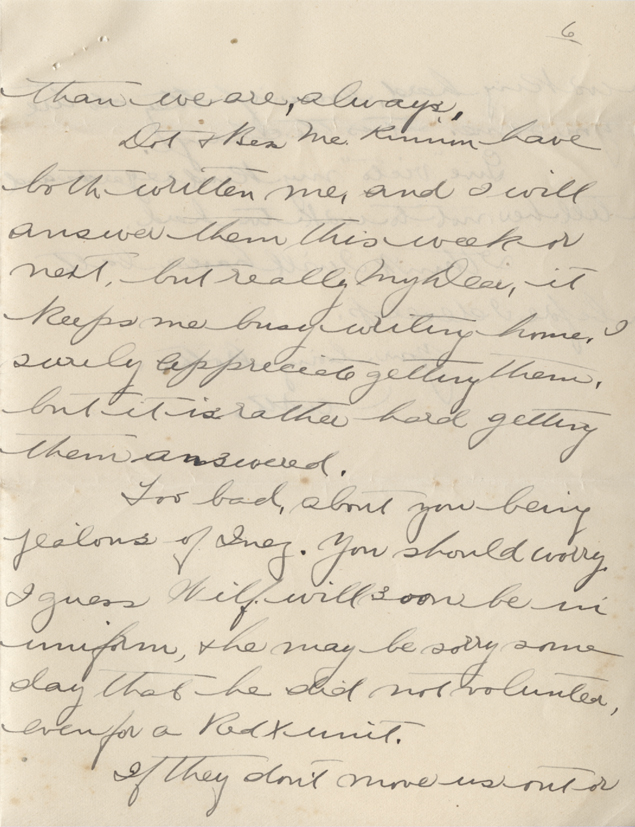 6
than we are, always,
Dot & Bea Mc Kinnon have
both written me, and I will
answer them this week or
next, but really My Dear, it
keeps me busy writing home. I
surely appreciate getting them,
but it is rather hard getting
them answered.
Too bad, about you being
jealous of Inez. You should worry.
I guess Wilf. will soon be in
uniform, & he may be sorry some
day that he did not volunteer,
even for a Red X unit.
If they don't move us out or